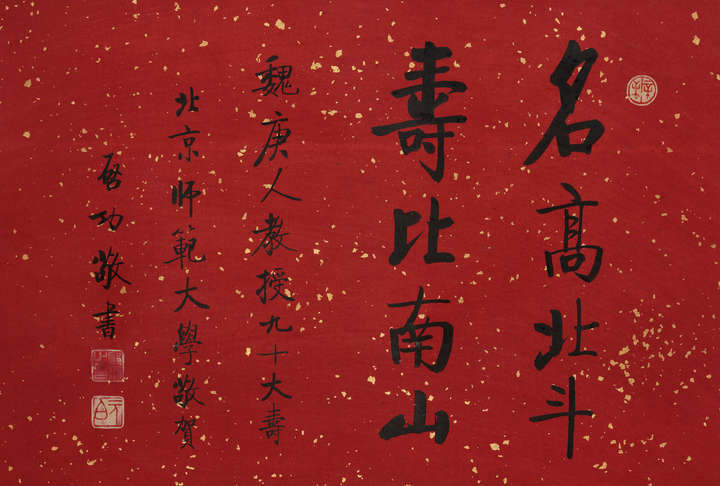 名高北斗
壽比南山
魏庚人教授九十大壽
北京師範大學敬賀
啓功敬書